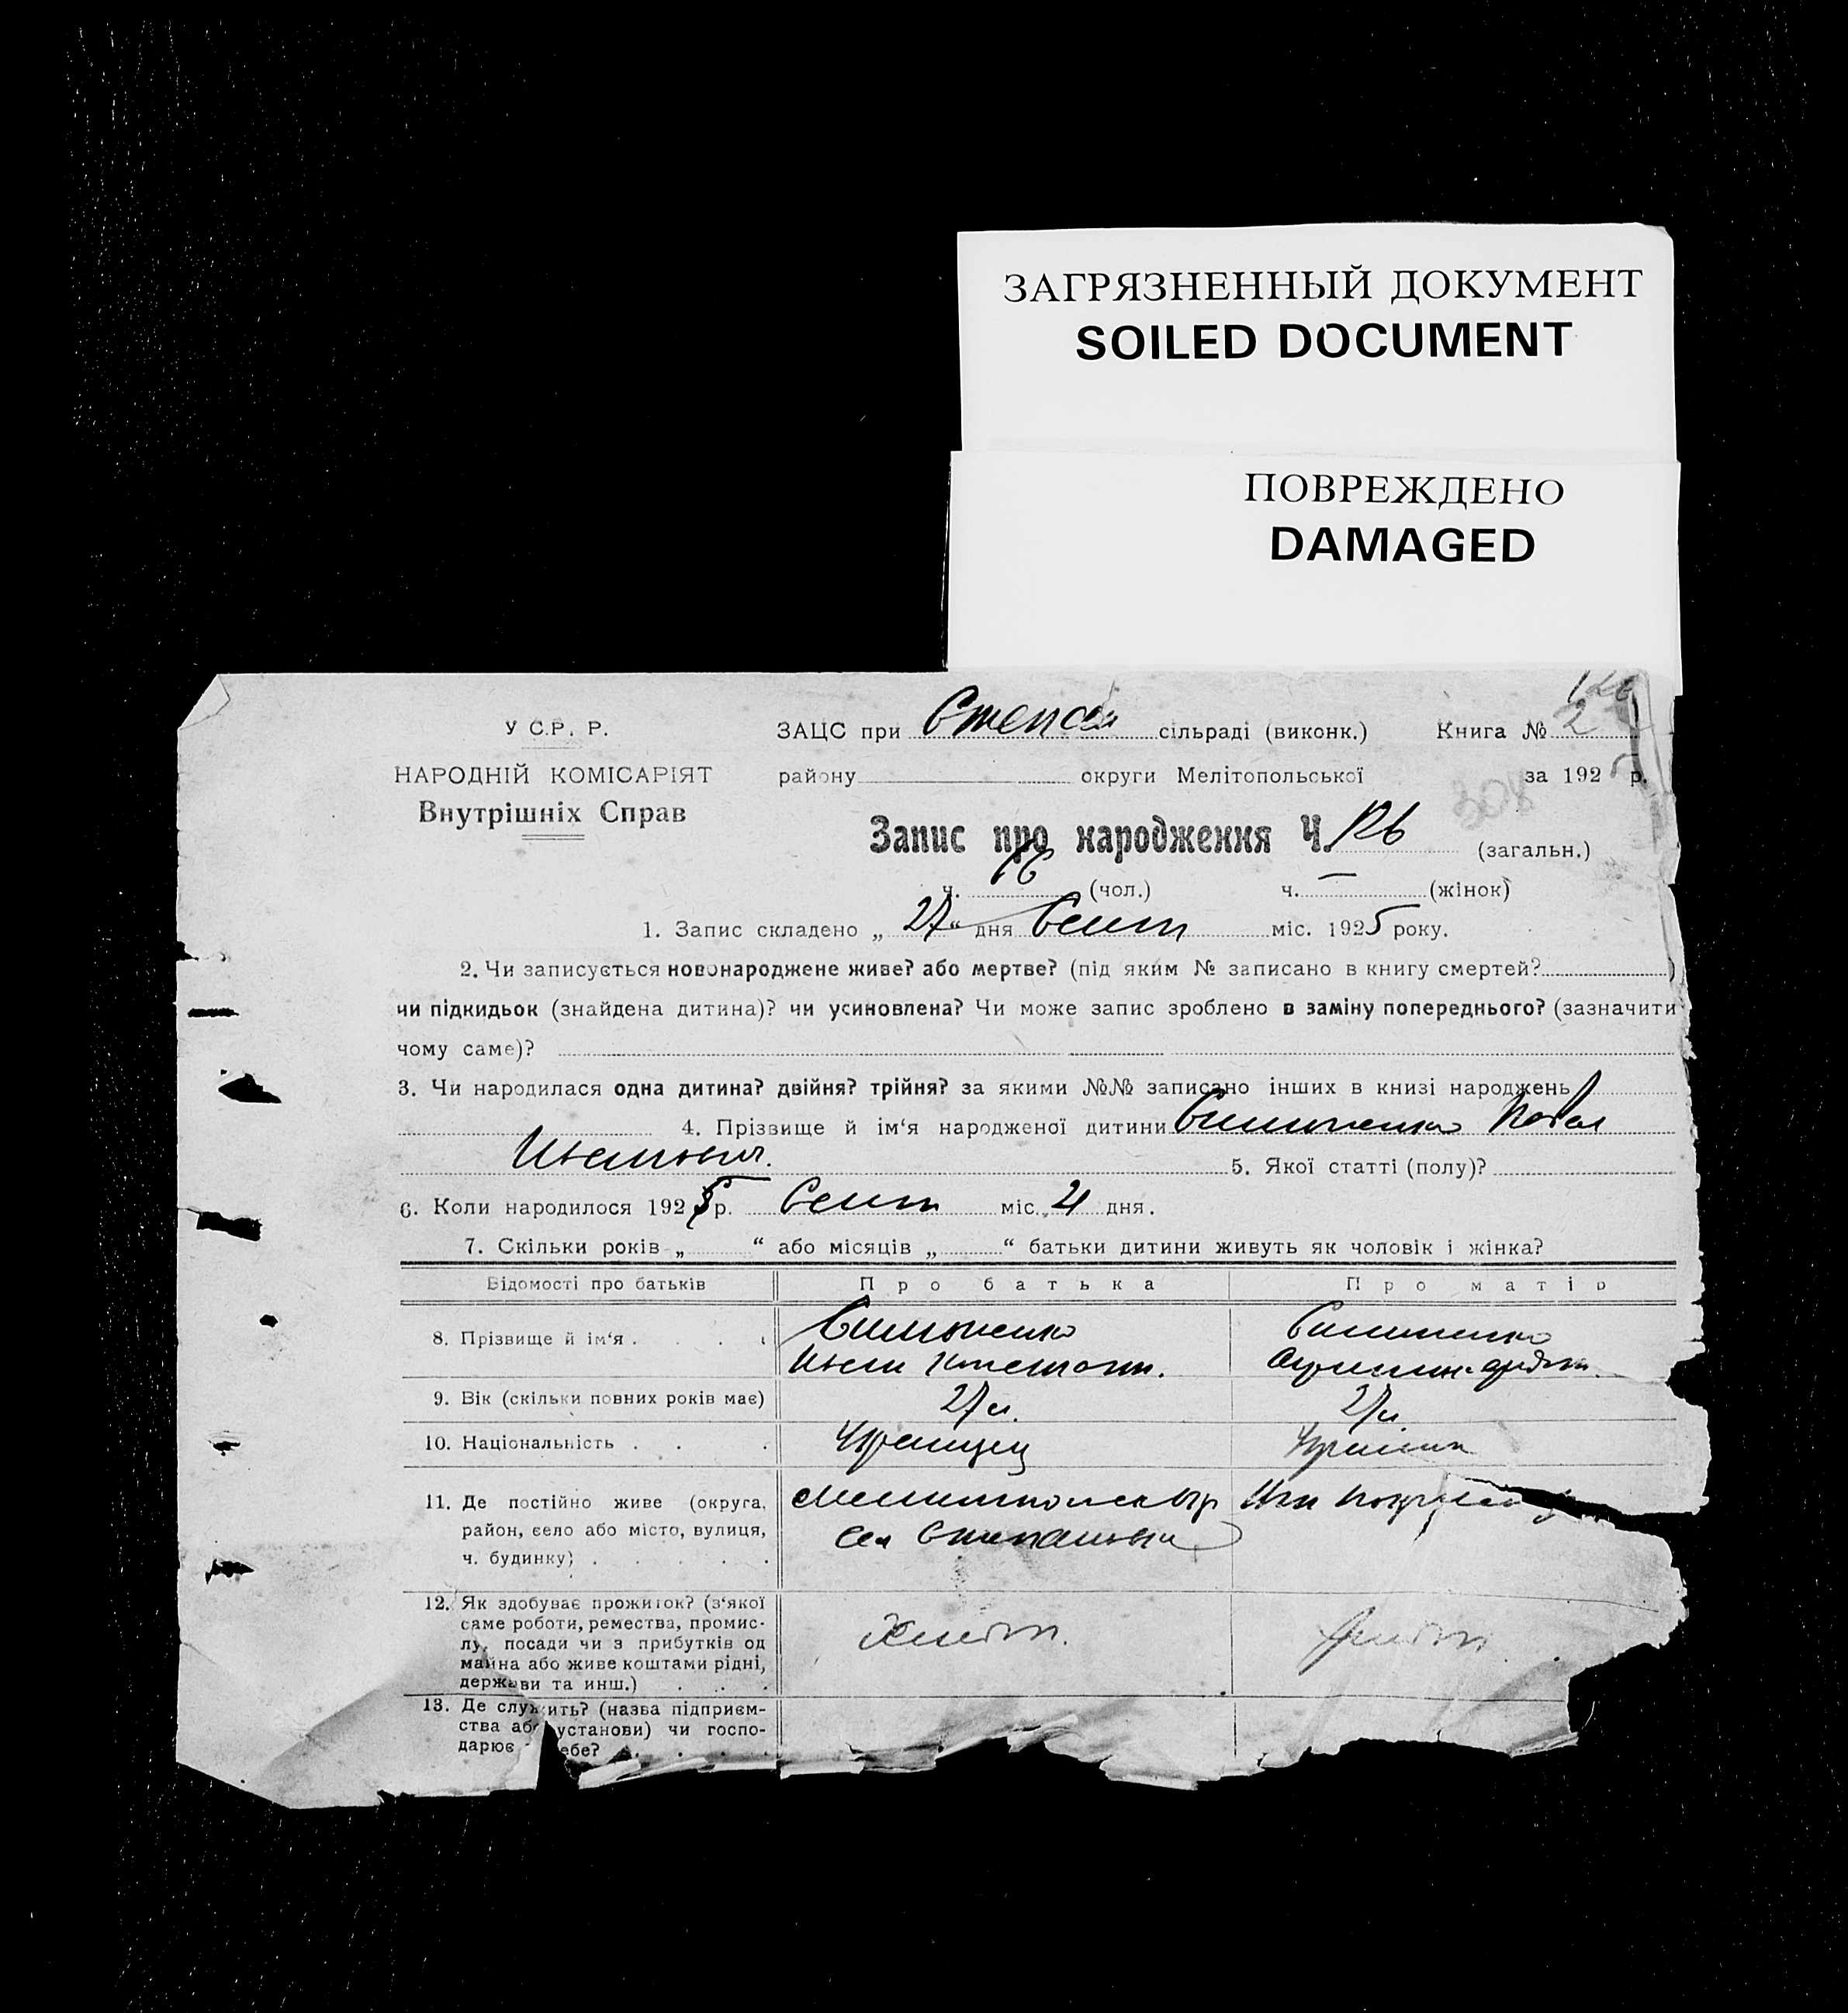 ЗАГРЯЗНЕННЫЙ ДОКУМЕНТ
SOILED DOCUMENT
ПОВРЕЖДЕНО
DAMAGED
У С.Р. Р.
НАРОДНІЙ КОМІСАРІЯТ
Внутрішніх Справ
ЗАЦС при сільраді (виконк.) Книга № 2
району округи Мелітопольської за 1925 р.
308
Запис про народження Ч. 126 (загальн.)
ч. 76 (чол.) ч. — (жінок)
1. Запис складено „ 27 “ дня Сент міс. 1925 року.
2. Чи записується новонароджене живе? або мертве? (під яким № записано в книгу смертей? )
чи підкидьок (знайдена дитина)? чи усиновлена? Чи може запис зроблено в заміну попереднього? (зазначити
чому саме)?
3. Чи народилася одна дитина? двійня? трійня? за якими №№ записано інших в книзі народжень
4. Прізвище й ім‘я народженої дитини Симоненко Павел
Иванович. 5. Якої статті (полу)?
6. Коли народилося 1925 р. Сент міс. 21 дня.
7. Скільки років „ “ або місяців „ “ батьки дитини живуть як чоловік і жінка?
Відомості про батьків Про батька Про матір
8. Прізвище й ім‘я . . . . Симоненко Симоненко
Иван
9. Вік (скільки повних років має) 27 л. 27 л
10. Національність . . . Украинец Украин
11. Де постійно живе (округа,
район, село або місто, вулиця,
ч. будинку) . . . . .
Мелитопольск окр
12. Як здобуває прожиток? (з‘якої
саме роботи, ремества, промис-
лу, посади чи з прибутків од
майна або живе коштами рідні,
держави та инш.) . . .
13. Де служить? (назва підприєм-
ства або установи) чи госпо-
дарює ебе? . . . .